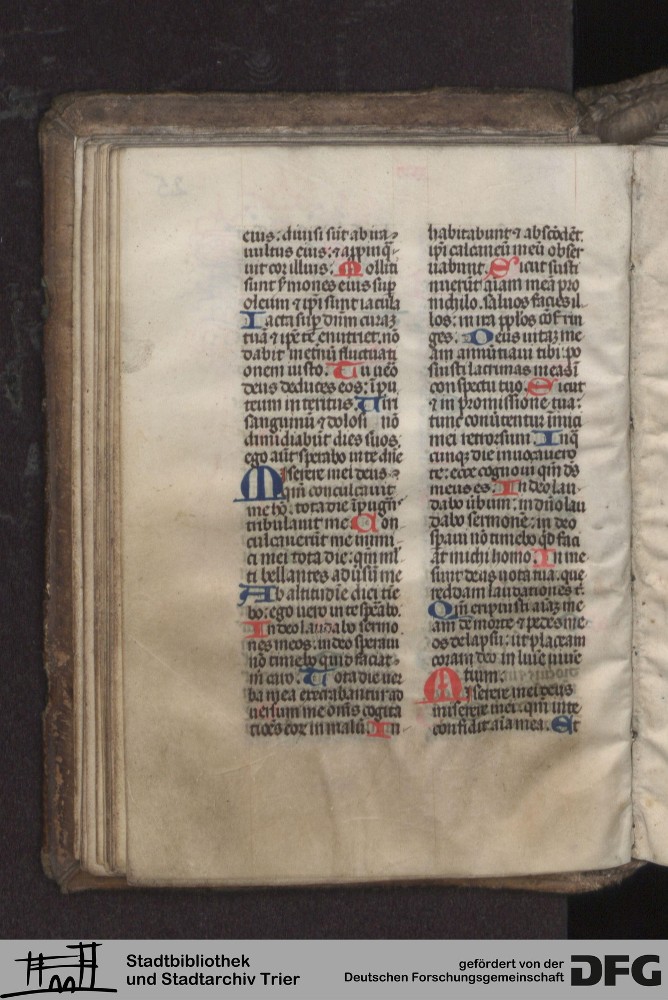 eius: diuisi sūt ab ira
uultus eius: ⁊ appinq̄
uit cor illius. Molliti
sunt s̄mones eius sup
oleum ⁊ ip̄i sunt iacula
Iacta sup dn̄m curaz
tuā ⁊ ip̄e te enutriet. nō
dabit in et̄nū fluctuati
onem iusto. Tu ueō
deus deduces eos: ī pu
teum interitus. Uiri
sanguinū ⁊ dolosi nō
dimidiabūt dies suos.
ego aūt sperabo in te dn̄e
Miserere mei deus
qm̄ conculcauit
me hō. tota die īpugn̄
tribulauit me. Con
culcauerūt me inimi
ci mei tota die: qm̄ ml̄
ti bellantes adūsū me
Ab altitudīe diei tīe
bo: ego uero in te sp̄abo.
In deo laudabo sermo
nes meos: in deo speraui
nō timebo quid faciat
m̄ caro. Tota die uer
ba mea execrabantur ad
uersum me om̄s cogita
tiōes eoꝝ in malū. In
habitabunt ⁊ abscōdēt.
ip̄i calcaneū meū obser
uabunt. Sicut susti
nuerūt aīam meā pro
nichilo. saluos facies il
los: in ira pplos cōfrin
ges. Deus uitaz me
am annūtiaui tibi: po
suisti lacrimas meas ī
conspectu tuo. Sicut
⁊ in promissione tua:
tunc conūtentur īnimici
mei retrorsum. In q̄
cunq̄ die inuocauero
te: ecce cognoui qm̄ ds̄
meus es. In deo lau
dabo ūbum: in dn̄o lau
dabo sermonē: in deo
sp̄aui nō timebo qd̄ faci
at michi homo. In me
sunt deus uota tua. que
reddam laudationes t̄.
Qm̄ eripuisti aīaz me
am de morte ⁊ pedes me
os de lapsu: ut placeam
coram deo in luīe uiuē
tium.
Miserere mei deus
miserere mei: qm̄ in te
confidit aīa mea. Et
Stadtbibliothek
und Stadtarchiv Trier
gefördert von der
Deutschen Forschungsgemeinschaft
DFG